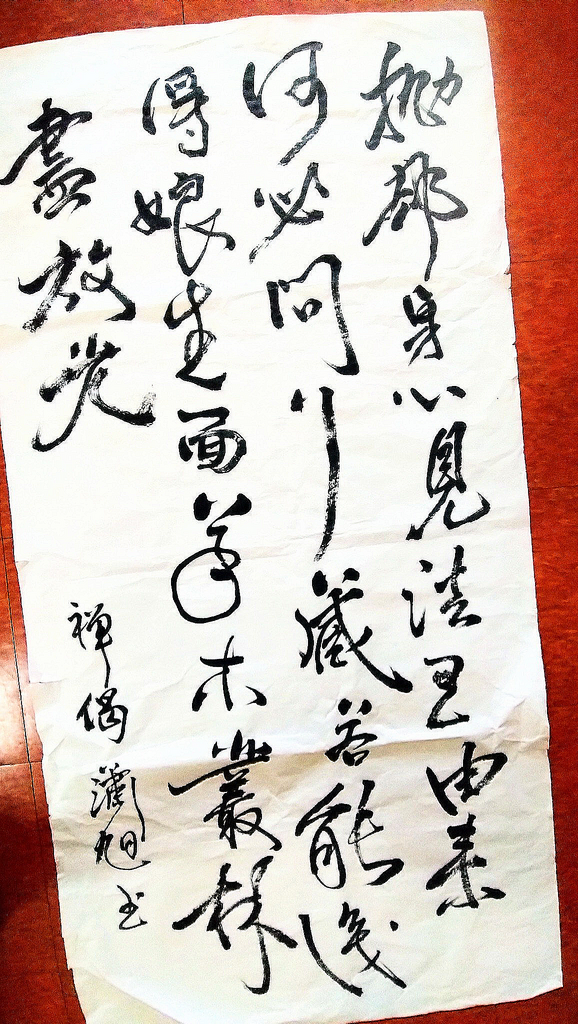 抛却身心見法王由来
何必問行藏若能識
得娘生面草木叢林
盡放光
禅偈 旭书